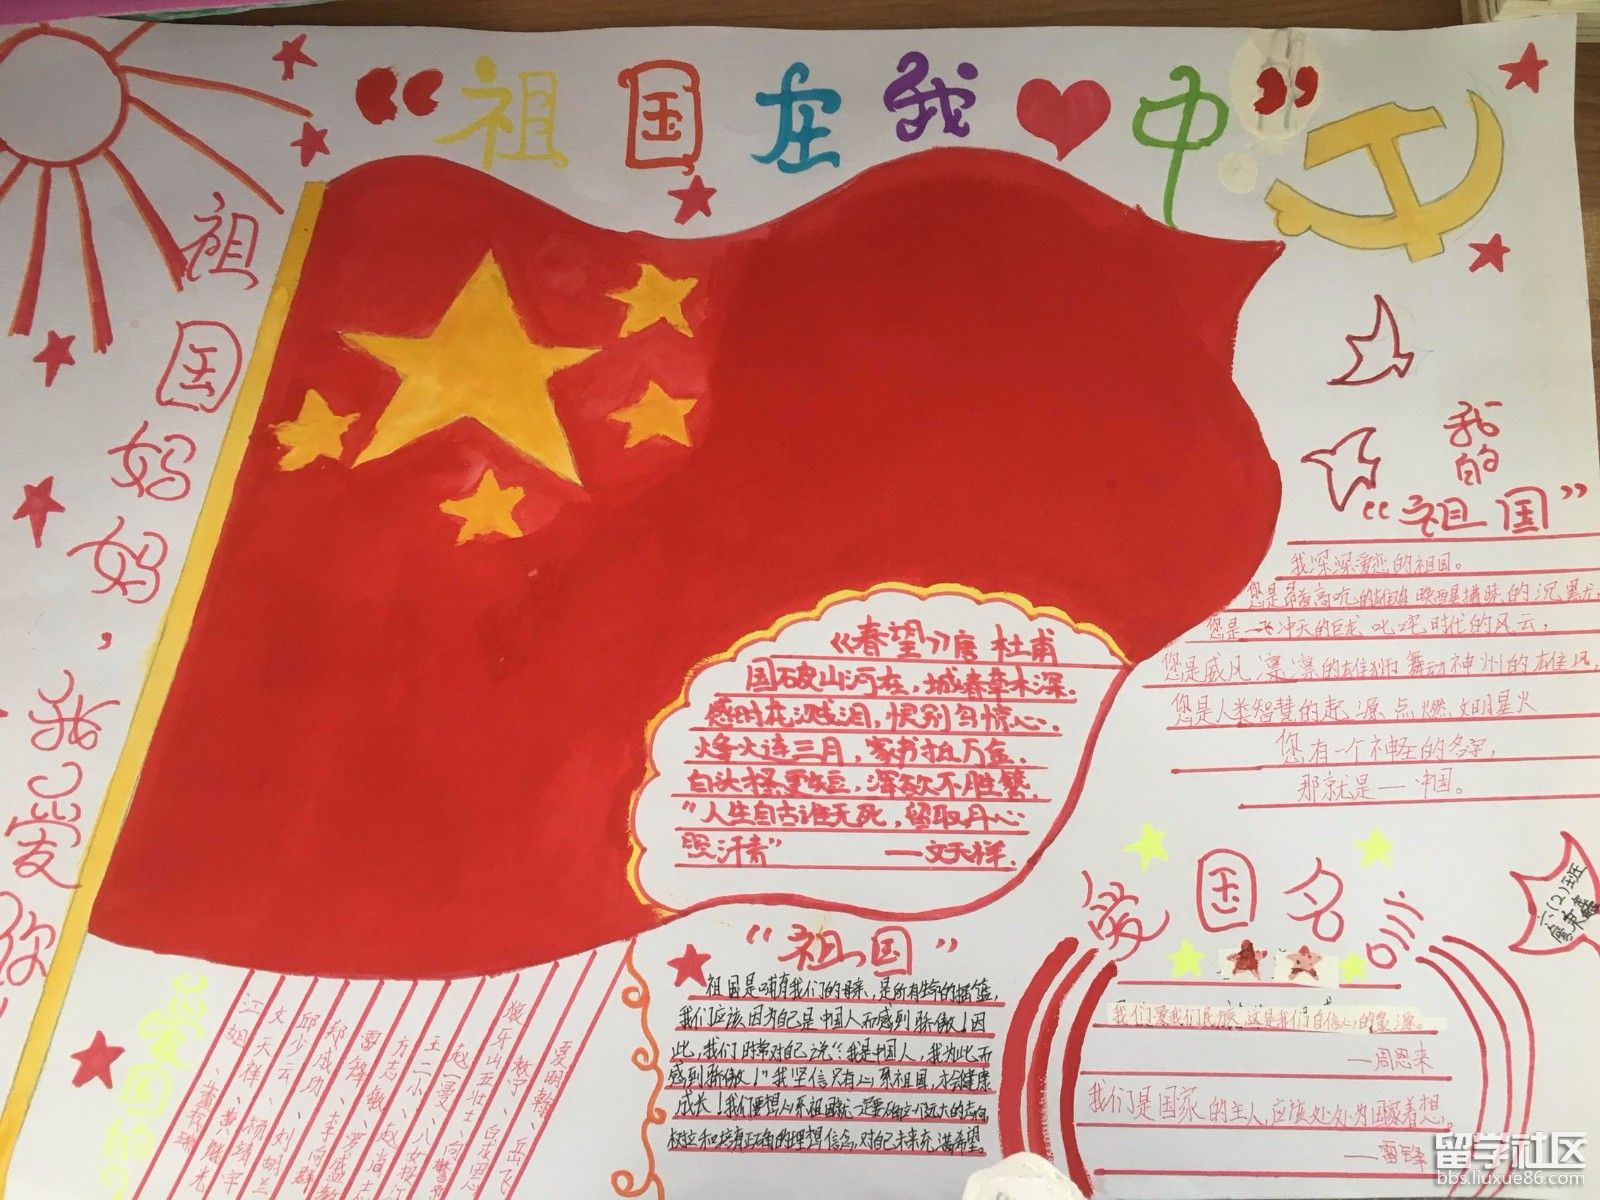 “祖国在我中”
祖国妈妈，我爱你
我的
“祖国”
我深深爱恋的祖国。
您是昂首高吭的雄鸡 唤醒拂晓的沉默，
您是一飞冲天的巨龙 叱咤时代的风云，
您是威风凛凛的雄狮 舞动神州的雄风，
您是人类智慧的起源 点燃文明星火
您有一个神圣的名字，
那就是一中国。
《春望》唐 杜甫
国破山河在，城春草木深.
感时花溅泪，恨别鸟惊心.
烽火连三月，家书抵万金.
白头搔更短，浑欲不胜簪.
“人生自古谁无死，留取丹心
照汗青”
—文天祥.
“祖国”
祖国是哺育我们的母亲，是所有生命的摇篮，
我们应该因为自己是中国人而感到骄傲！因
此，我们时常对自己说“我是中国人，我为此而
感到骄傲！”我坚信只有心系祖国，才会健康
成长！我们要想心系祖国就一定要确立远大的志向，
树立和培育正确的理想信念，对自己未来充满希望。
爱国名言
我们爱我们民族，这是我们自信心的象源。
—周恩来
我们是国家的主人，应该处处为国家着想。
—雷锋
六(2)班
江姐、董存瑞
文天祥、黄继光
邱少云、杨靖宇
郑成功、刘胡兰
雷锋、李向群
方志敏、罗盛教
王二小、赵尚志
赵一曼、八女投江
狼牙山五壮士
岳飞
留学社区
bbs.liuxue86.com